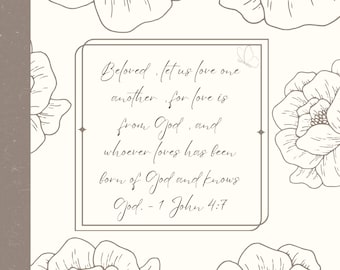 Beloved , let us love one
another , for love is
from God , and
whoever loves has been
born of God and knows
God. - 1 John 4:7